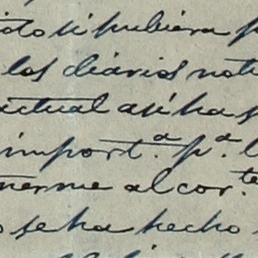 si pubiera
los diarios not
actual así ha
import.ª p.ª l
nerme al cor.te
se ha hecho